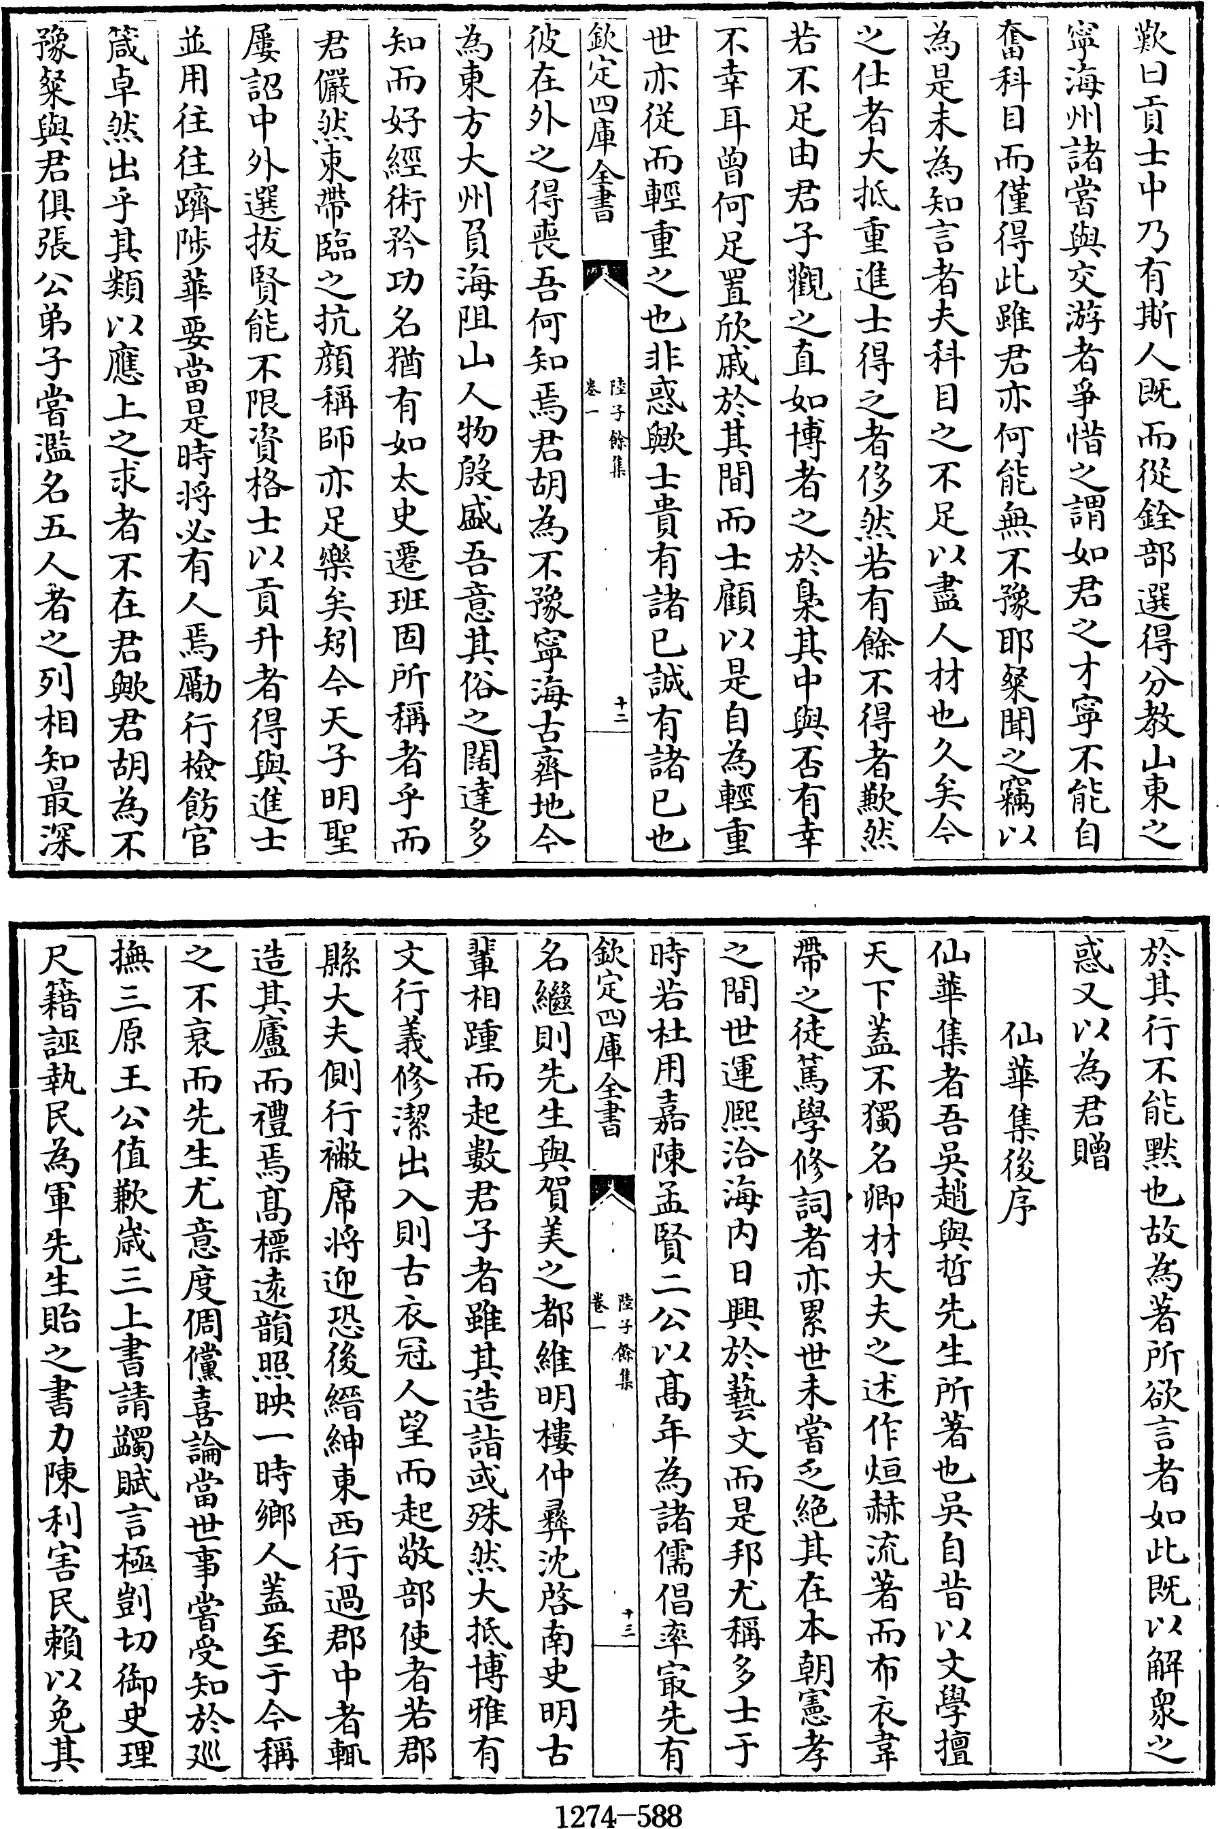 歎曰貢士中乃有斯人既而從銓部選得分教山東之
寧海州諸嘗與交游者爭惜之謂如君之才寧不能自
奮科目而僅得此雖君亦何能無不豫耶粲聞之竊以
為是未為知言者夫科目之不足以盡人材也久矣今
之仕者大抵重進士得之者侈然若有餘不得者歉然
若不足由君子觀之直如博者之於梟其中與否有幸
不幸耳曾何足置欣戚於其間而士顧以是自為輕重
世亦從而輕重之也非惑歟士貴有諸已誠有諸已也
欽定四庫全書
陸子餘集
卷一
十二
彼在外之得喪吾何知焉君胡為不豫寧海古齊地今
為東方大州負海阻山人物殷盛吾意其俗之闊達多
知而好經術矜功名猶有如太史遷班固所稱者乎而
君儼然束帶臨之抗顔稱師亦足樂矣矧今天子明聖
屢詔中外選拔賢能不限資格士以貢升者得與進士
並用往往躋陟華要當是時將必有人焉勵行檢飭官
箴卓然出乎其類以應上之求者不在君歟君胡為不
豫粲與君俱張公弟子嘗濫名五人者之列相知最深
於其行不能黙也故為著所欲言者如此既以解衆之
惑又以為君贈
仙華集後序
仙華集者吾吳趙與哲先生所著也吳自昔以文學擅
天下蓋不獨名卿材大夫之述作烜赫流著而布衣韋
帶之徒篤學修詞者亦累世未嘗乏絶其在本朝憲孝
之間世運熈洽海内日興於藝文而是邦尤稱多士于
時若杜用嘉陳孟賢二公以髙年為諸儒倡率㝡先有
欽定四庫全書
陸子餘集
卷一
十三
名繼則先生與賀美之都維明樓仲彞沈啓南史明古
輩相踵而起數君子者雖其造詣或殊然大抵博雅有
文行義修潔出入則古衣冠人望而起敬部使者若郡
縣大夫側行襒席將迎恐後縉紳東西行過郡中者輒
造其廬而禮焉髙標遠韻照映一時鄉人蓋至于今稱
之不衰而先生尤意度倜儻喜論當世事嘗受知於廵
撫三原王公值歉嵗三上書請蠲賦言極剴切御史理
尺籍誣執民為軍先生貽之書力陳利害民賴以免其
1274-588